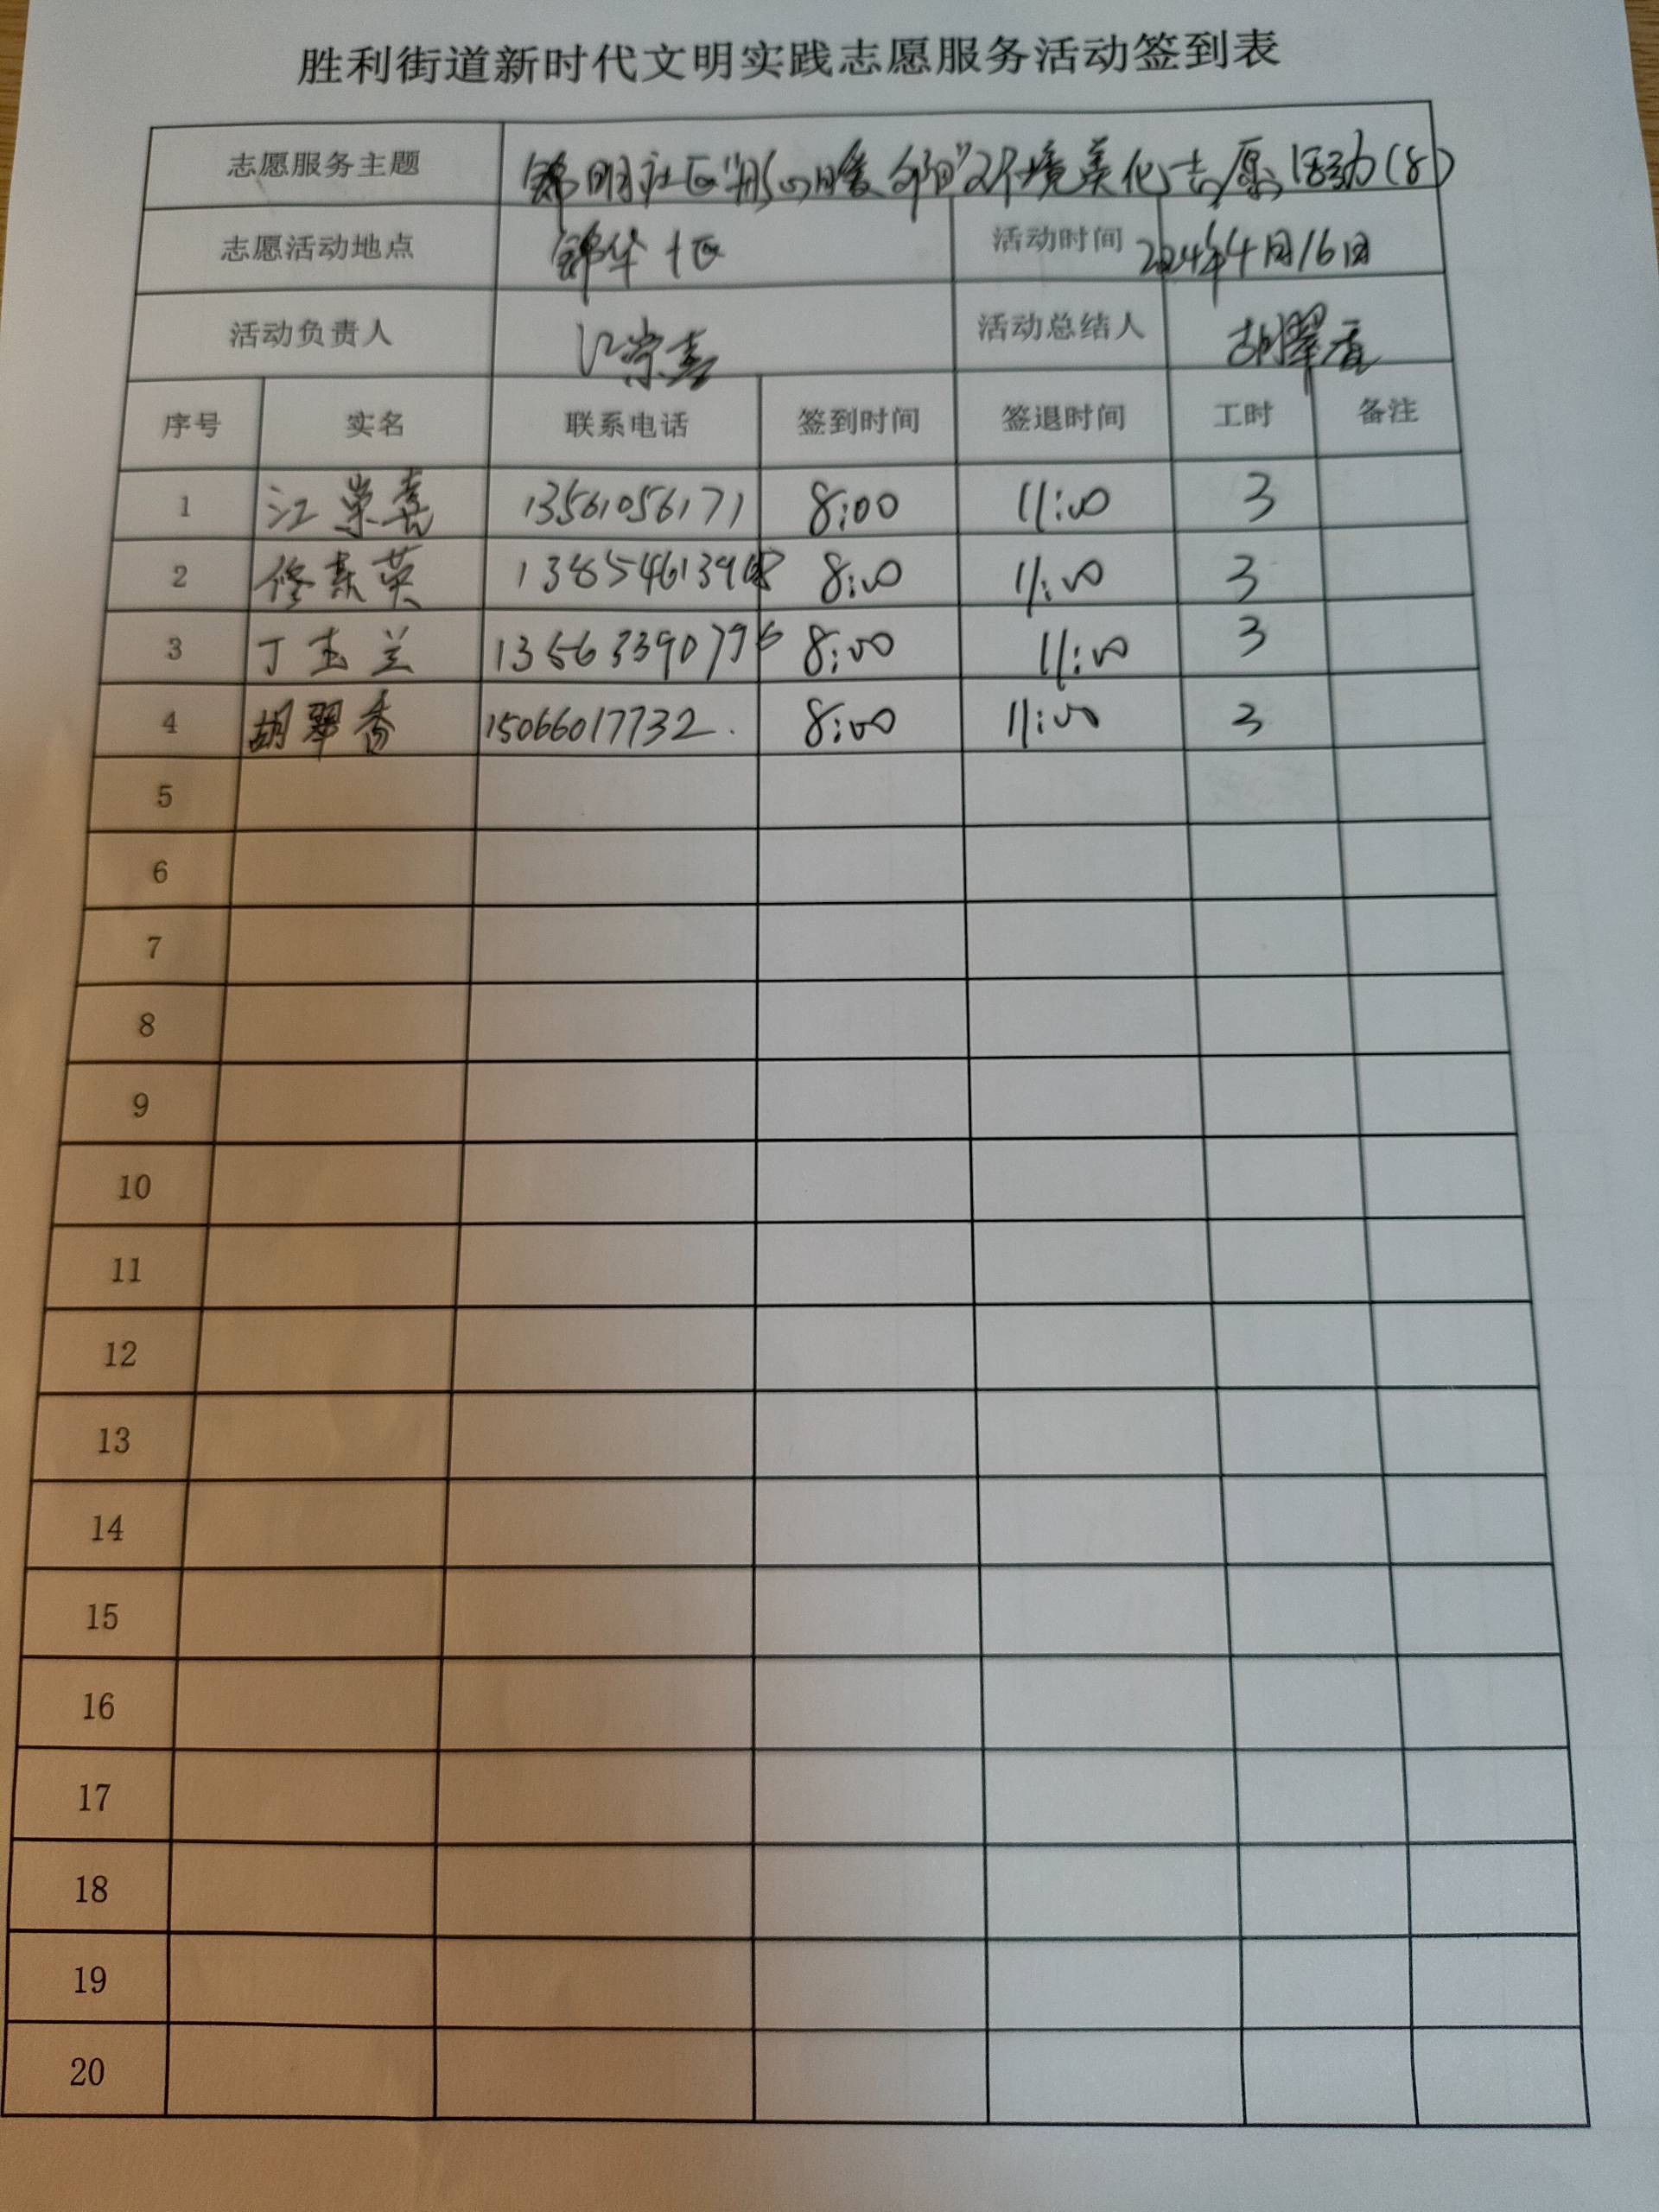 胜利街道新时代文明实践志愿服务活动签到表
志愿服务主题 锦明社区"彤心暖邻"环境美化志愿活动(8)
志愿活动地点 锦华十区 活动时间 2024年4月16日
活动负责人 江崇喜 活动总结人 胡翠香
序号 实名 联系电话 签到时间 签退时间 工时 备注
1 江崇喜 13561056171 8:00 11:00 3
2 修素英 8:00 11:00 3
3 丁玉兰 13563390796 8:00 11:00 3
4 胡翠香 15066017732. 8:00 11:00 3
5
6
7
8
9
10
11
12
13
14
15
16
17
18
19
20